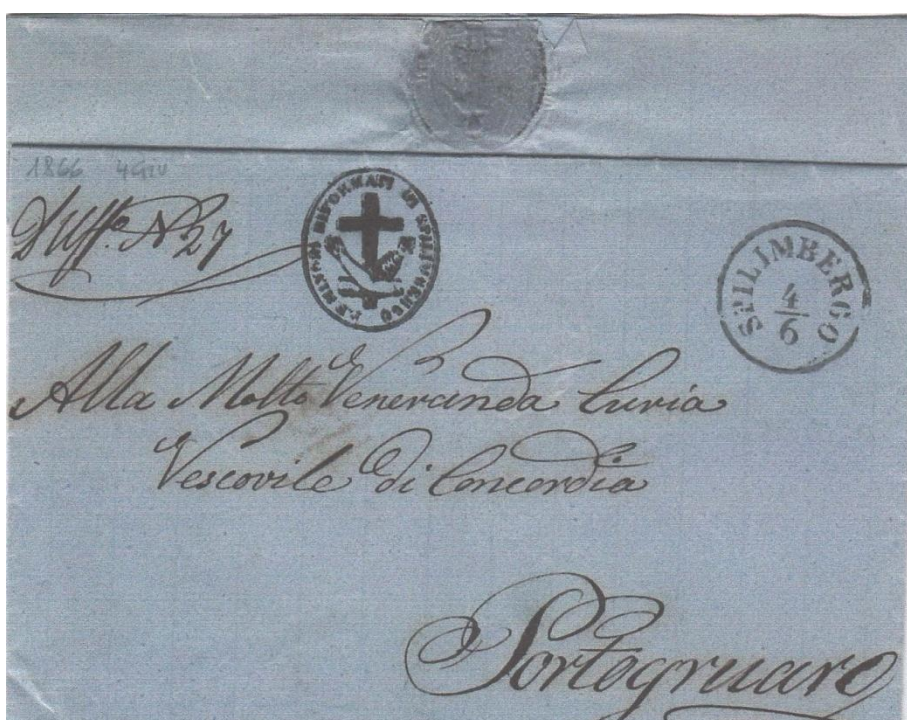 1866 4 GIU
D'Uff.º N 27
P.P. MINORI RIFORMATI DI SPILIMBERGO
SPILIMBERGO
4
6
Alla Molto Veneranda Curia
Vescovile di Concordia
Portogruaro